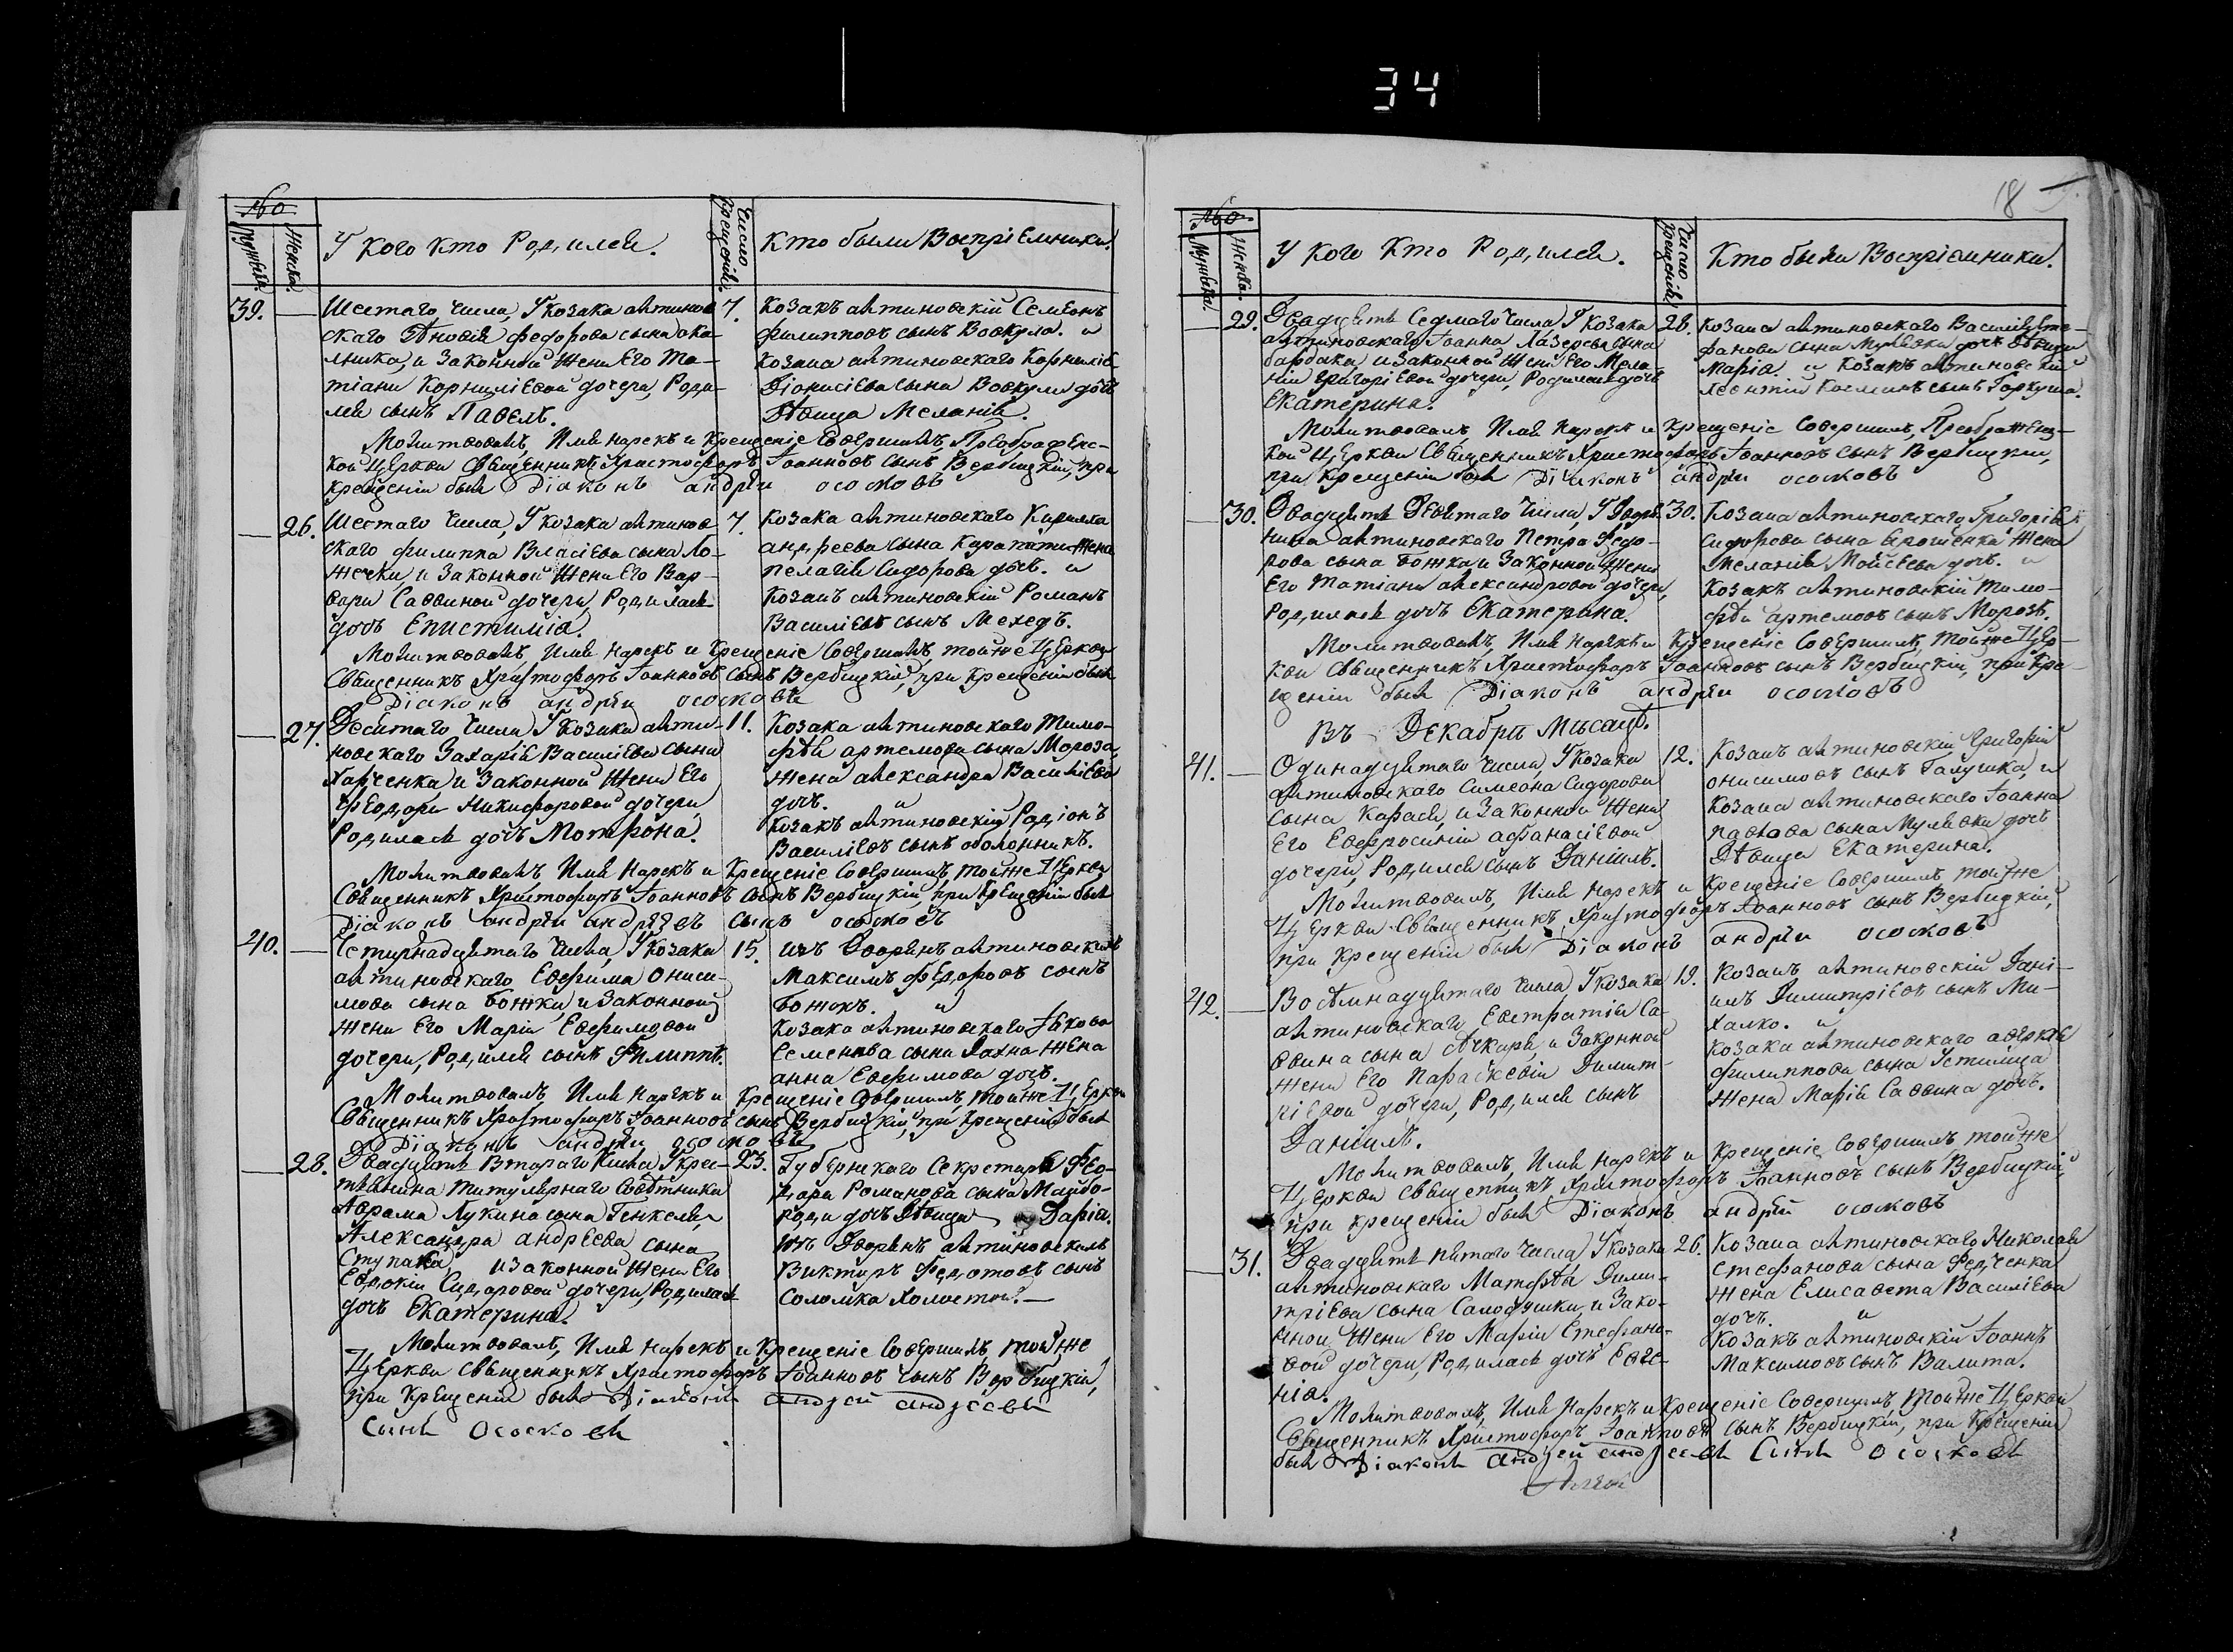 34
№
Мужеска.
Женска.
У кого кто Родился.
Число крещенія.
Кто были Воспріемники.
39.
Шестаго числа, У козака литинов
скаго Федорова сына
и Законной жены Его Та-
тіаны Корниліевой дочери, Роди-
лся сынъ Павелъ.
7.
Козакъ литиновскій Семіонъ
филипповъ сынъ Вовкула. и
Козака литиновскаго Корнилія
Діонисіева сына Вовкулы дочь
Дѣвица Меланія.
Молитвовалъ, Имя нарекъ и Крещеніе Совершилъ, Преображенс-
кой Церкви Священникъ Христофоръ Іоанновъ сынъ Вербицкій, при
крещеніи былъ Діаконъ андрѣй осомовъ
26.
Шестаго числа, У козака литинов
скаго филиппа Власіева сына Ло-
жечки, и Законной Жены Его Вар-
вары Саввиной дочери, Родилась
дочь Епистимія.
7.
Козака литиновскаго Кирилла
андреева сына Жена
пелагія Сидорова дочь. и
Козакъ литиновскій Романъ
Василіевъ сынъ Мехедъ.
Молитвовалъ, Имя нарекъ и Крещеніе Совершилъ, тойже Церкви
Священникъ Христофоръ Іоанновъ сынъ Вербицкій, при крещеніи былъ
Діаконъ андрѣй осомовъ
27.
Десятаго числа, У Козака лити-
новскаго Захарія Василіева сына
Харченка, и Законной Жены Его
Феодоры Никифоровой дочери,
Родилась дочь Мотрона.
11.
Козака литиновскаго Тимо-
фѣя артемова сына Мороза,
жена александра Василіева
дочь. и
Козакъ литиновскій Родіонъ
Василіевъ сынъ оболонникъ.
Молитвовалъ Имя Нарекъ и Крещеніе Совершилъ тойже Церкви
Священникъ Христофоръ Іоанновъ сынъ Вербицкій, при крещеніи былъ
Діаконъ андрѣй андрѣевъ сынъ осомовъ
40.
Четырнадцятаго числа, У козака
литиновскаго Евфима Ониси-
мова сына Божка, и Законной
жены Его Маріи Евфимовой
дочери, Родился сынъ Филиппъ.
15.
изъ Дворянъ литиновскихъ
Максимъ федоровъ сынъ
Божокъ. и
Козака литиновскаго Якова
Семенова сына Лахна жена
анна Евфимова дочь.
Молитвовалъ, Имя нарекъ и Крещеніе Совершилъ, тойже Церкви
Священникъ Христофоръ Іоанновъ сынъ Вербицкій, при крещеніи былъ
Діаконъ андрѣй осомовъ
28.
Двадцять Втораго числа У крес-
тянина титулярнаго Совѣтника
Аврама Лукина сына Генкеля,
Александра андреева сына
Ступака, и законной жены Его
Евдокіи Сидоровой дочери, Родилась
дочь Екатерина.
23.
Губернскаго Секретаря Фео-
дора Романова сына Майбо-
роды дочь Дѣвица Дарія.
изъ Дворянъ литиновскихъ
Викторъ Федотовъ сынъ
Соломка Холостой.
Молитвовалъ, Имя нарекъ и Крещеніе Совершилъ, тойже
Церкви Священникъ Христофоръ Іоанновъ сынъ Вербицкій,
при Крещеніи былъ Діаконъ андрей андреевъ
сынъ Ососковъ
18
№
Мужеска.
Женска.
У кого Кто Родился.
Число крещенія.
Кто были Воспріемники.
29.
Двадцять Седмаго числа, У козака
литиновскаго Іоанна Лазорева сына
и законной жены Его Мела
ніи Григоріевой дочери, Родилась дочь
Екатерина.
28.
Козака литиновскаго Василія Сте-
фанова сына Мулявки дочь дѣвица
Марія и Козакъ литиновскій
Леонтій сынъ Гаркуша.
Молитвовалъ Имя нарекъ и крещеніе Совершилъ, Преображенс-
кой Церкви Священникъ Христофоръ Іоанновъ сынъ Вербицкій,
при крещеніи былъ Діаконъ андрѣй осомовъ
30.
Двадцять Девятаго числа, У Дворя-
нина литиновскаго Петра Федо-
рова сына Божка и Законной Жены
Его Татіаны александровой дочери,
Родилась дочь Екатерина.
30.
Козака литиновскаго Григорія
Сидорова сына Ярошенка жена
Меланія Мойсѣева дочь. и
Козакъ литиновскій Тимо-
фѣй артемовъ сынъ Морозъ.
Молитвовалъ, Имя нарекъ и Крещеніе Совершилъ, тойже Цер-
кви Священникъ Христофоръ Іоанновъ сынъ Вербицкій, при кре-
щеніи былъ Діаконъ андрѣй осомовъ
Въ Декабрѣ Мѣсяцѣ.
41.
Одинадцятаго числа, У Козака
литиновскаго Симеона Сидорова
сына Карася, и Законной жены
Его Евфросиніи афанасіевой
дочери, Родился сынъ Даніилъ.
12.
Козакъ литиновскій Григорій
онисимовъ сынъ Галушка, и
Козака литиновскаго Іоанна
павлова сына Мулявки дочь
Дѣвица Екатерина.
Молитвовалъ, Имя нарекъ и Крещеніе Совершилъ тойже
Церкви Священникъ, Христофоръ Іоанновъ сынъ Вербицкій,
при крещеніи былъ Діаконъ андрѣй осомовъ
42.
Восѣмнадцятаго числа У козака
литиновскаго Евстратія Са-
ввина сына и Законной
жены Его Параскевіи Димит-
ріевой дочери, Родился сынъ
Даніилъ.
19.
Козакъ литиновскій Дані-
илъ Димитріевъ сынъ Ми-
халко. и
Козака литиновскаго аверкія
филиппова сына Устимца
жена Марія Саввина дочь.
Молитвовалъ, Имя нарекъ и Крещеніе Совершилъ тойже
Церкви Священникъ Христофоръ Іоанновъ сынъ Вербицкій,
при крещеніи былъ Діаконъ андрѣй осомовъ
31.
Двадцять пятаго числа, У козака
литиновскаго Матфѣя Дими-
тріева сына Салодушки, и Зако-
нной жены Его Маріи Стефано-
вой дочери, Родилась дочь Евге-
нія.
26.
Козака литиновскаго Николая
Стефанова сына Федченка
жена Елисавета Василіева
дочь. и
Козакъ литиновскій Іоаннъ
Максимовъ сынъ Валита.
Молитвовалъ, Имя Нарекъ и Крещеніе Совершилъ, Тойже Церкви
Священникъ Христофоръ Іоанновъ сынъ Вербицкій, при Крещеніи
былъ Діаконъ андрей андреевъ Сынъ Ососковъ